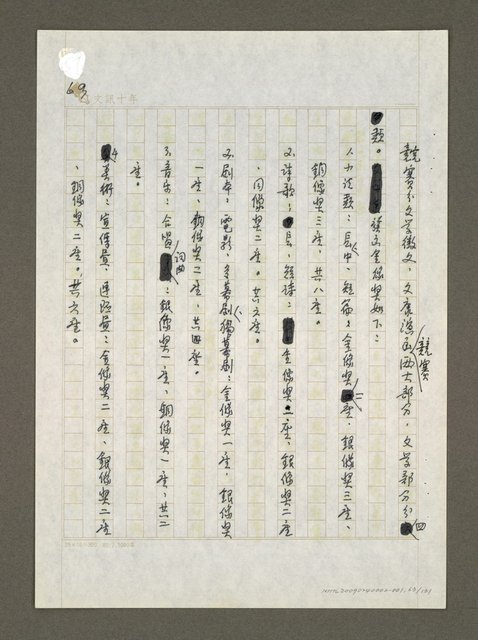 69
文訊十年
競賽分文學徵文、文康競賽兩大部分。文學部分分四
類。 金像獎如下:
1.小說類:長、中、短篇:金像獎二座、銀像獎三座、
銅像獎三座,共八座。
2.詩歌:長、短詩:金像獎二座、銀像獎二座
、銅像獎二座。共六座。
3.劇本:電影、多幕劇、獨幕劇:金像獎一座,銀像獎
一座、銅像獎二座,共四座。
4.音樂:合唱詞曲:銀像獎一座、銅像獎一座,共二
座。
美術:宣傳畫、連環畫:金像獎二座、銀像獎二座
、銅像獎二座。共六座。